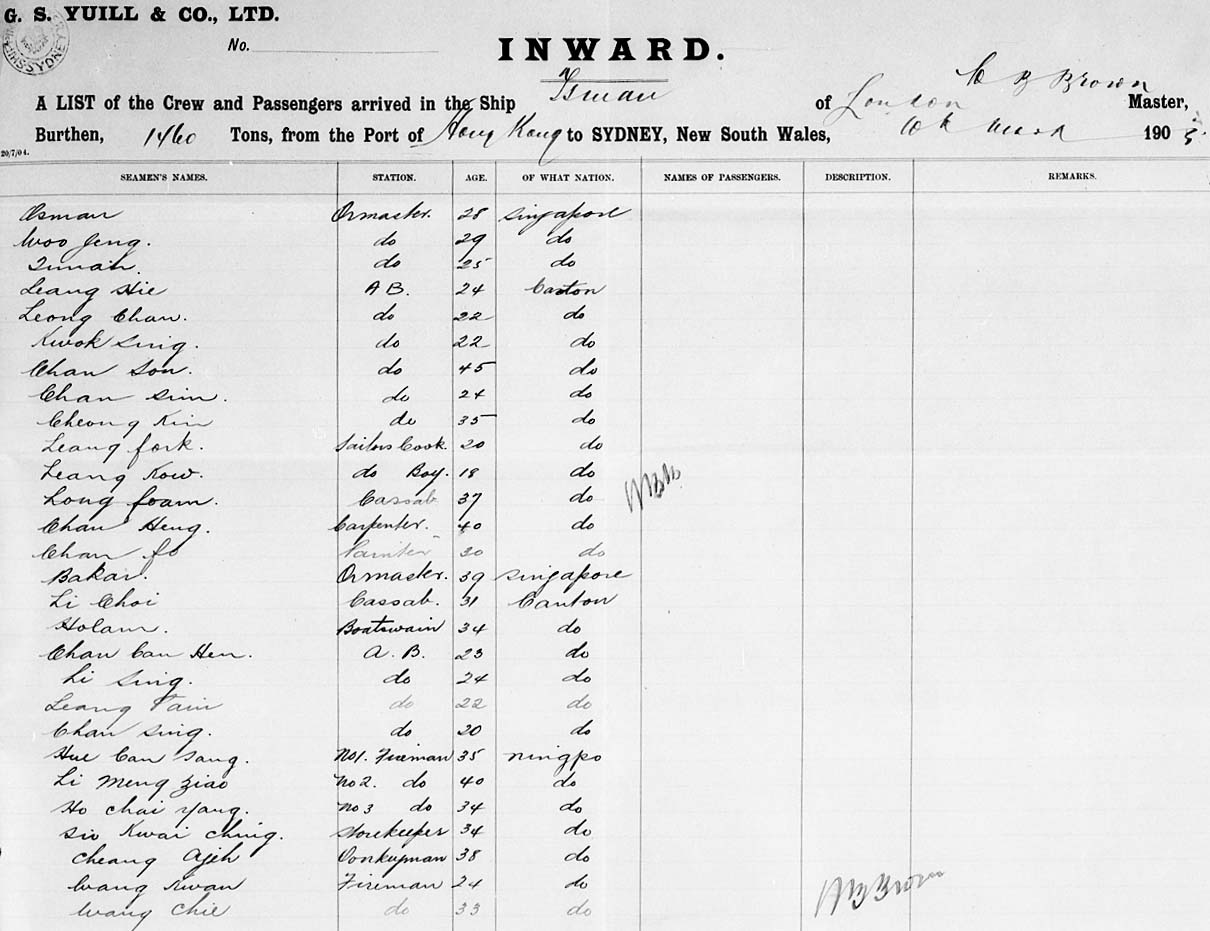 G. S. YUILL & CO., LTD.
No.
INWARD.
A LIST of the Crew and Passengers arrived in the Ship of London C B Brown Master,
Burthen, 1460 Tons, from the Port of Hong Kong to SYDNEY, New South Wales, 1905
20/7/04.
SEAMEN'S NAMES. STATION. AGE. OF WHAT NATION. NAMES OF PASSENGERS. DESCRIPTION. REMARKS.
Osman Qrmaster. 28 Singapore
Woo Jeng. do 29 do
do 25 do
Leang Hie A B. 24 Canton
Leong Chan. do 22 do
Kwok Sing. do 22 do
Chan Son. do 45 do
Chan Sim. do 24 do
Cheong Kin do 35 do
Leang fork. Sailors Cook. 20 do
Leang Kow. do Boy. 18 do
Long foam. Cassab 37 do
Chan Heng. Carpenter. 40 do
Chan fo Painter 30 do
Bakar. Qrmaster. 39 Singapore
Li Choi Cassab. 31 Canton
Holam. Boatswain 34 do
Chan Can Hen. A. B. 23 do
Li Sing. do 24 do
Leang Tain do 22 do
Chan Sing. do 20 do
Hue Can Sang. No1. Fireman 35 Ningpo
Li Meng Ziao No 2. do 40 do
Ho Chai Yang. No 3 do 34 do
Siu Kwai Ching. Storekeeper 34 do
Cheang Ajeh Donkeyman 38 do
Wang Kwan Fireman 24 do
Wang Chie do 33 do